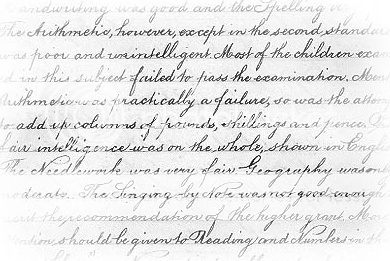 Handwriting was good and the Spelling very
The Arithmetic, however, except in the second, standard
was poor and unintelligent. Most of the children exam
d in this subject failed to pass the examination. Ment
Arithmetic was practically a failure, so was the attem
to add up columns of pounds, shillings and pence. A
air intelligence was on the whole, shown in Engli
The Needlework was very fair. Geography was on
oderate. The Singing by Note was not good enough
erit the recommendation of the higher grant. More
ention, should be given to Reading, and Numbers in th